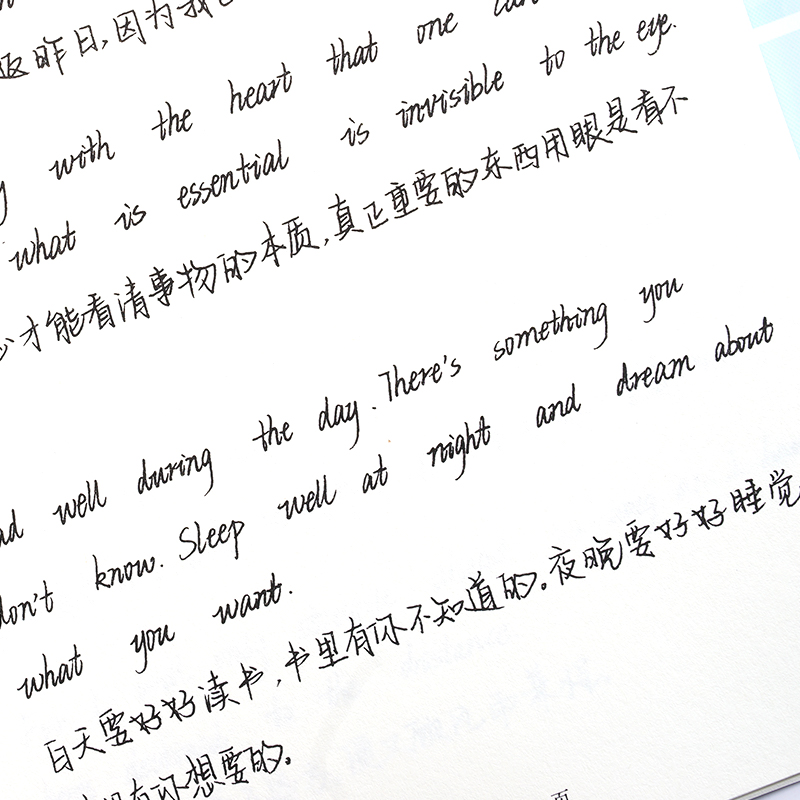 返昨日,因为我
with the heart that one can
what is essential is invisible to the eye.
才能看清事物的本质,真正重要的东西用眼是看不
well during the day. There's something you
don't know. Sleep well at night and dream about
what you want.
白天要好好读书,书里有你不知道的。夜晚要好好睡觉
有你想要的。
页